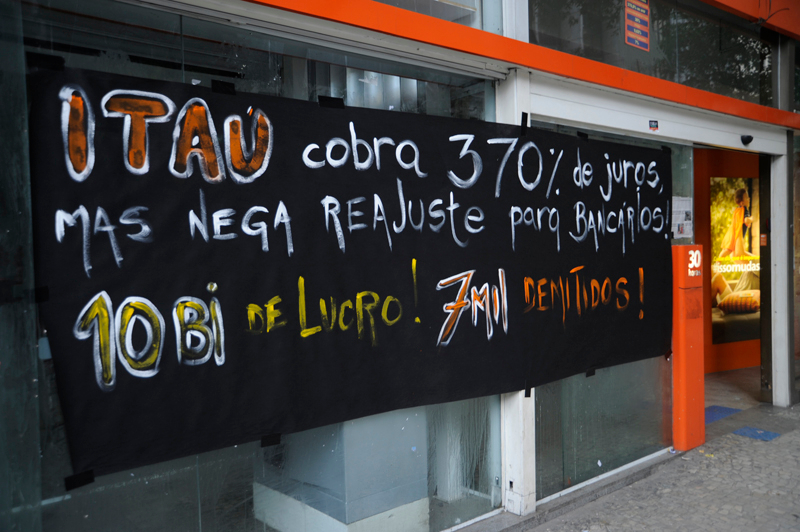 ITAÚ cobra 370% de juros,
MAS NEGA REAJUSTE para BANCÁRIOS!
10 BI DE LUCRO! 7 MIL DEMITIDOS!
30
horas
#issomudas